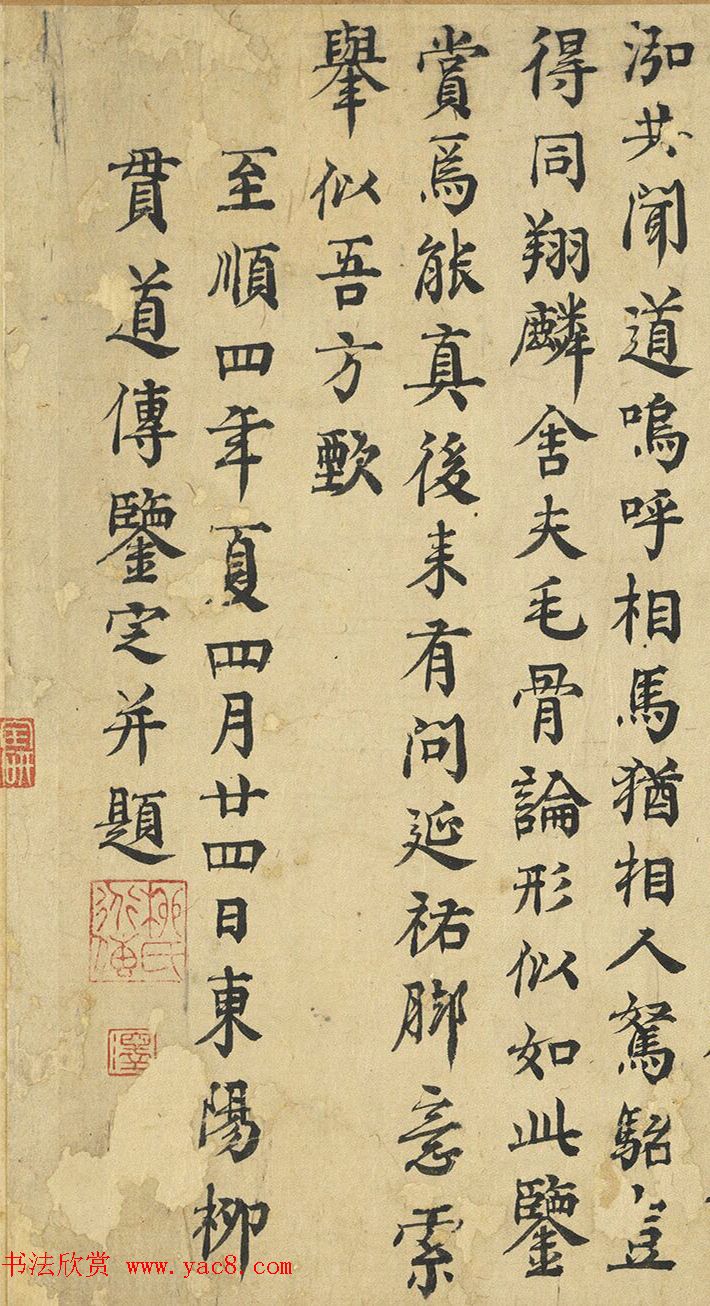 泓共聞道嗚呼相馬猶相人駑駘豈
得同翔麟舍夫毛骨論形似如此鑒
賞爲能真後来有問延祐脚意索
舉似吾方甄
至順四年夏四月廿四日東陽柳
貫道傳鑒定并題
柳氏道傳
書法欣赏 www.yac8.com